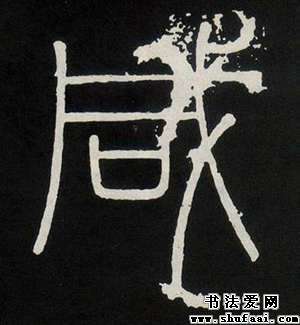 咸
书法爱网
www.shufaai.com